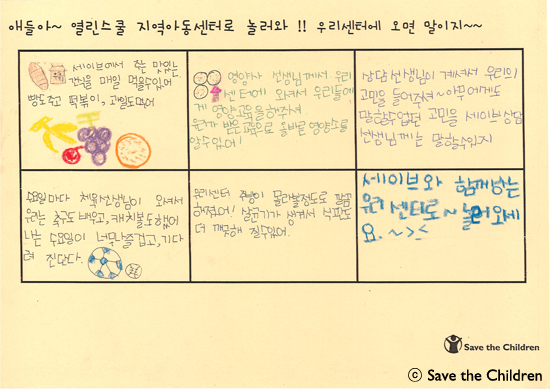 애들아~ 열린스쿨 지역아동센터로 놀러와 !! 우리센터에 오면 말이지~~
세이브에서 주는 맛있는
간식을 매일 먹을수있어
빵도주고 떡볶이, 과일도먹어
영양사 선생님께서 우리
센터에 와셔서 우리들에
게 영양교육을해주셔
우리가 받은교육으로 올바른 영양소를
알수있어!
상담선생님이 계셔서 우리의
고민을 들어주셔~아무에게도
말할수없던 고민을 세이브상담
선생님께는 말할수있지
수요일마다 체육선생님이 와셔서
우리는 축구도배우고, 캐치볼도했어
나는 수요일이 너무즐겁고, 기다
려 진단다.
우리센터 주방이 몰라볼정도로 깔끔
해졌어! 살균기가 생겨서 식판도
더 깨끗해 질수있어.
세이브와 함께하는
우리 센터로~ 놀러와세
요. ~><
Save the Children
© Save the Children